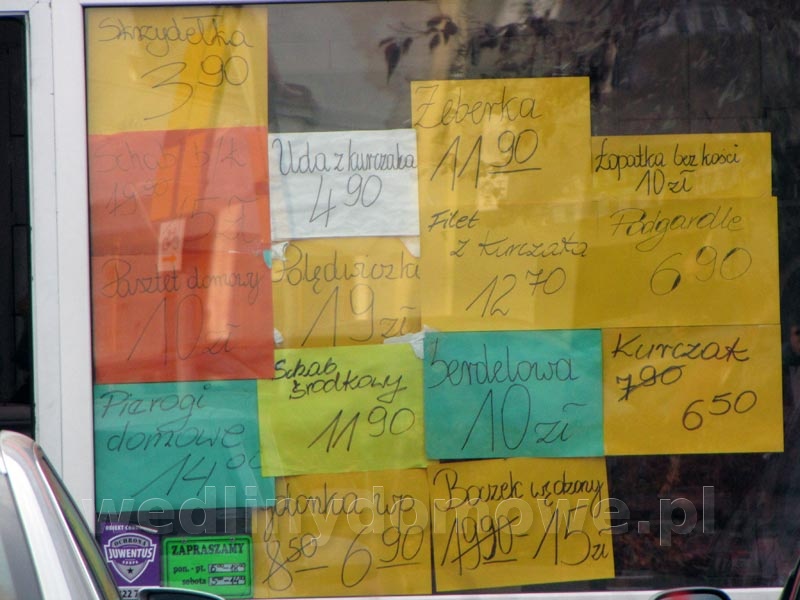 Skrzydełka
3 90
Schab b/k
19 90 15 zł
Pasztet domowy
10 zł
Pierogi
domowe
14 00
Uda z kurczaka
4 90
Polędwiczka
19 zł
Schab
środkowy
11 90
8 50 6 90
Żeberka
11 90
Filet
z kurczaka
12 70
Serdelowa
10 zł
Boczek wędzony
19 90 15 zł
Łopatka bez kości
10 zł
Podgardle
6 90
Kurczak
7 90
6 50
OCHRONA
JUWENTUS
ZAPRASZAMY
pon. - pt.
sobota
wedlinydomowe.pl